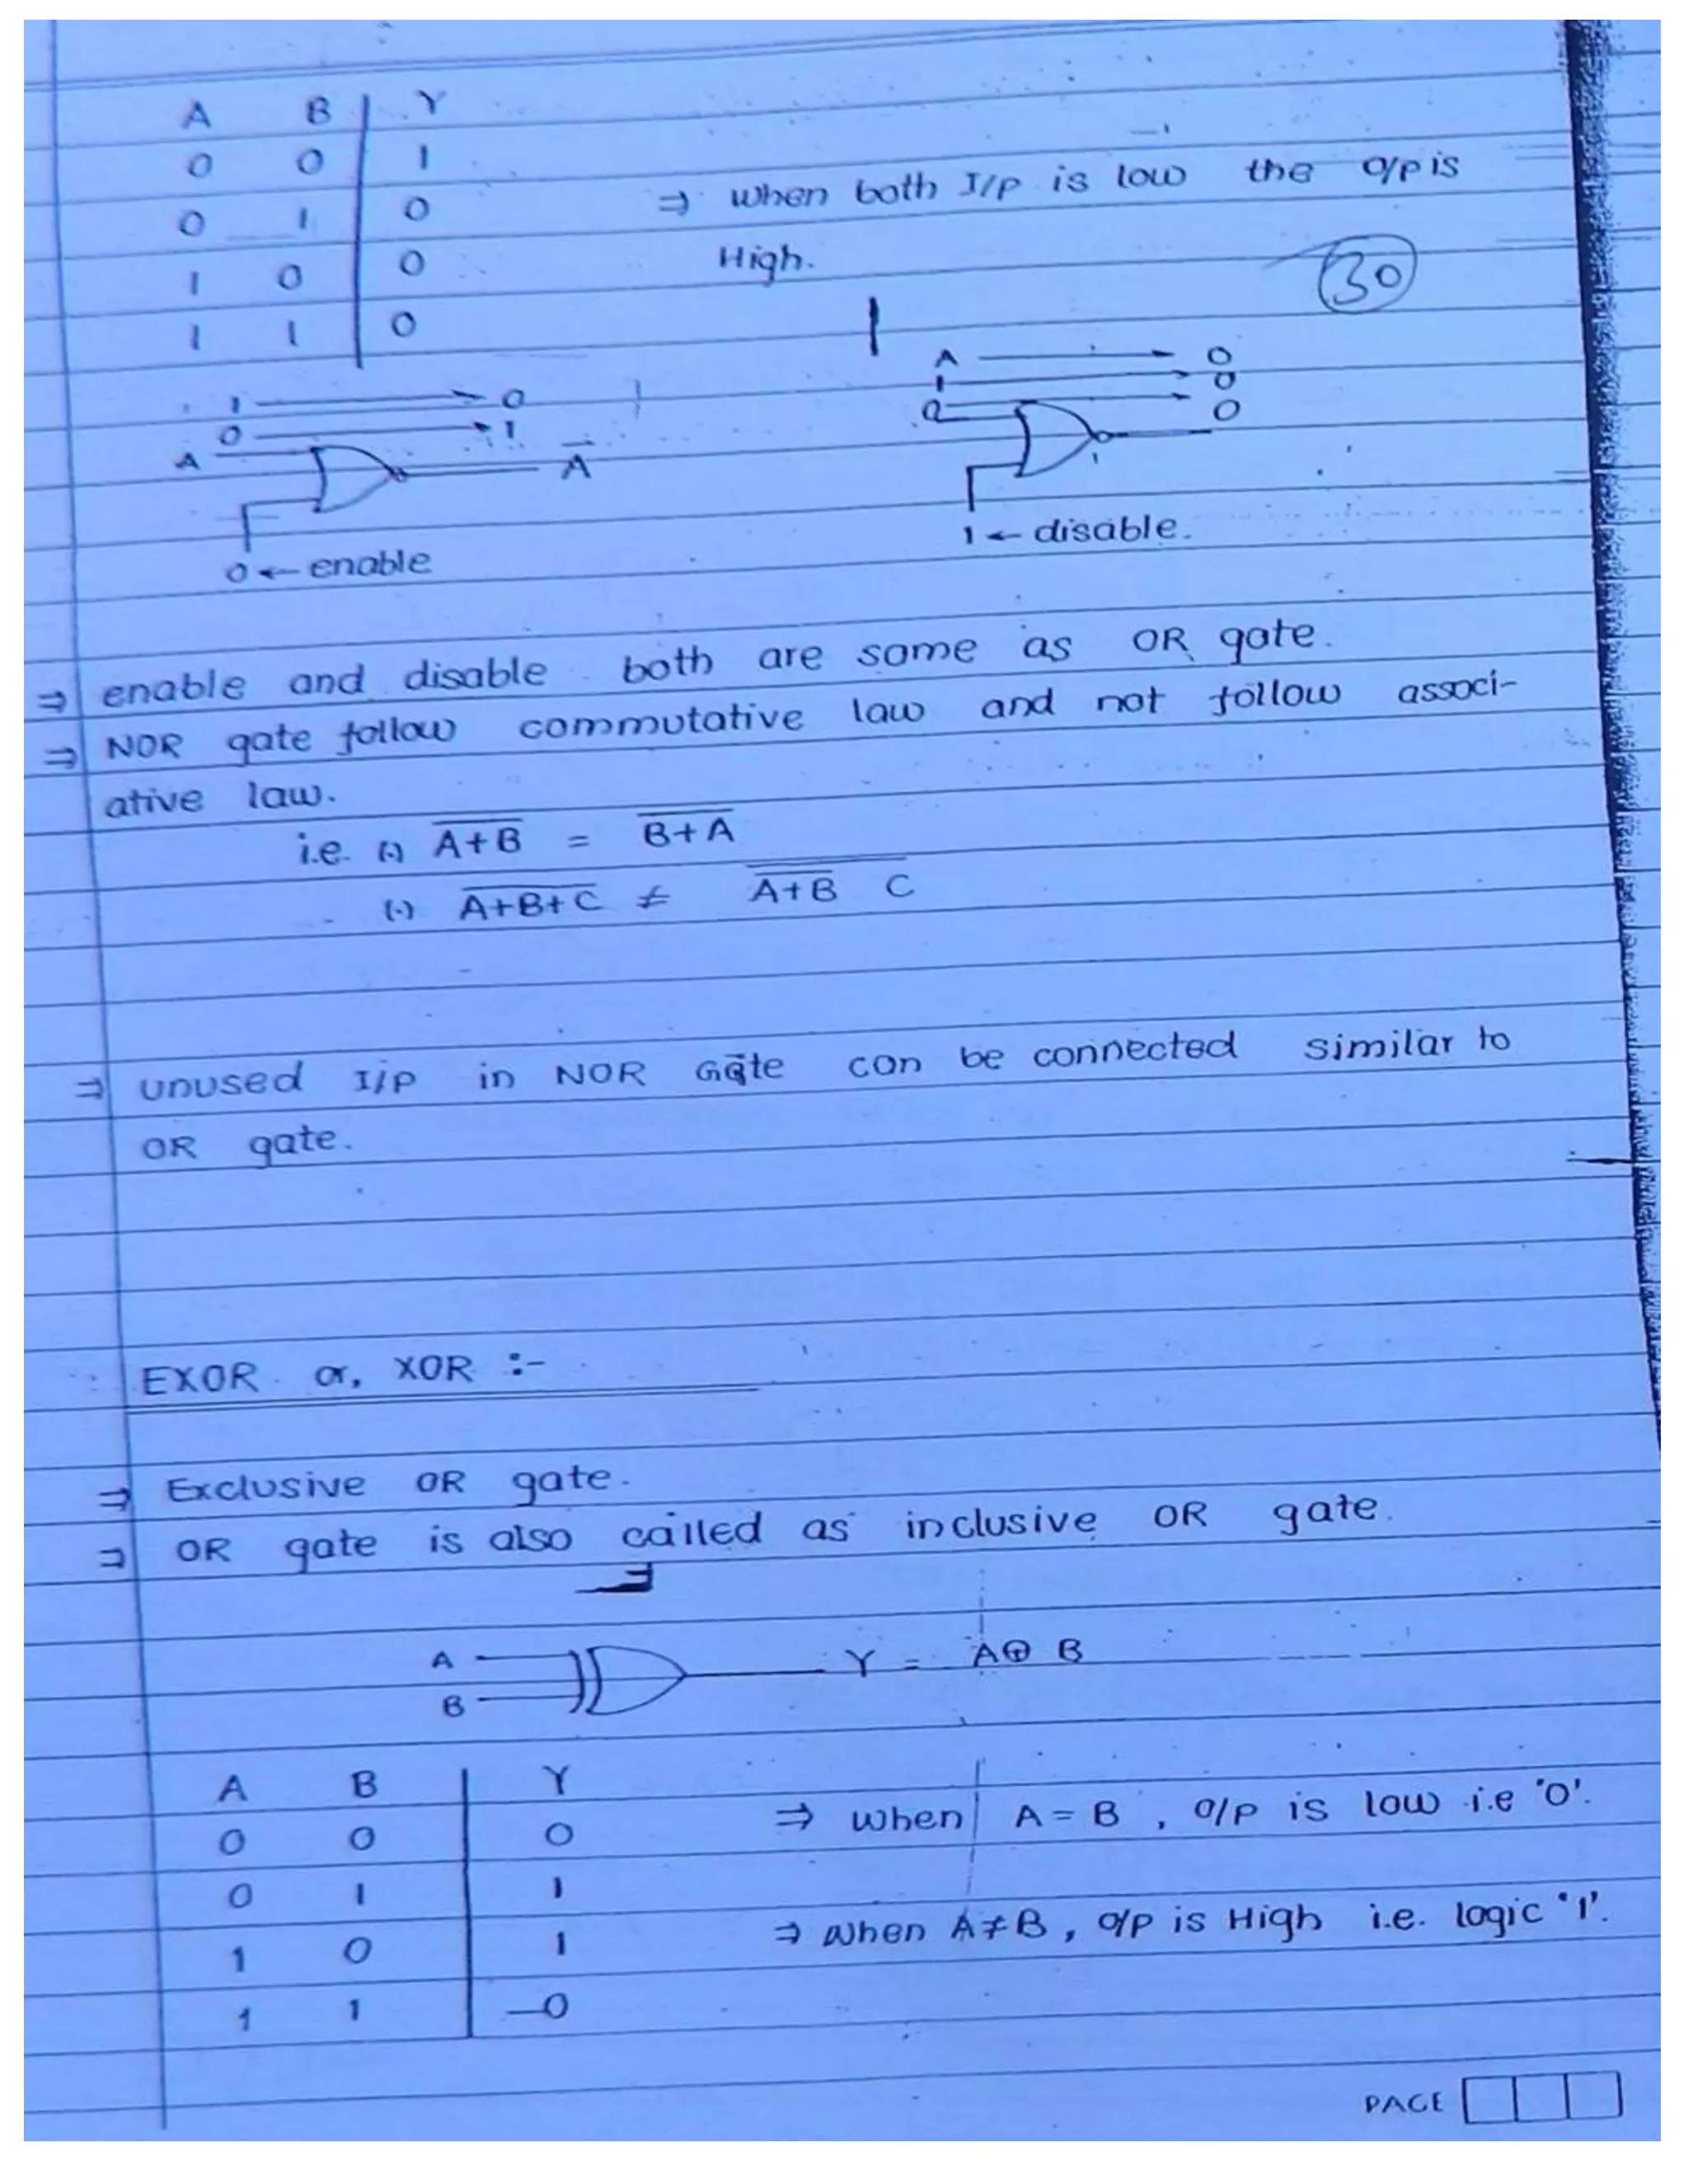 A B Y
0 0 1
0 1 0
1 0 0
1 1 0
⇒ when both I/P is low the o/p is
High.
30
1 → 0
0 → 1
A
A̅
0 ← enable
A → 0
1 → 0
0 → 0
1 ← disable.
⇒ enable and disable both are same as OR gate.
⇒ NOR gate follow commutative law and not follow associ-
ative law.
i.e. (·) \overline{A+B} = \overline{B+A}
(·) \overline{A+B+C} ≠ \overline{\overline{A+B} C}
⇒ unused I/P in NOR Gate can be connected similar to
OR gate.
EXOR or, XOR :-
⇒ Exclusive OR gate.
⇒ OR gate is also called as inclusive OR gate.
A
B
Y = A⊕ B
A B Y
0 0 0
0 1 1
1 0 1
1 1 0
⇒ when A = B , o/p is low i.e '0'.
⇒ when A≠B, o/p is High i.e. logic '1'.
PAGE